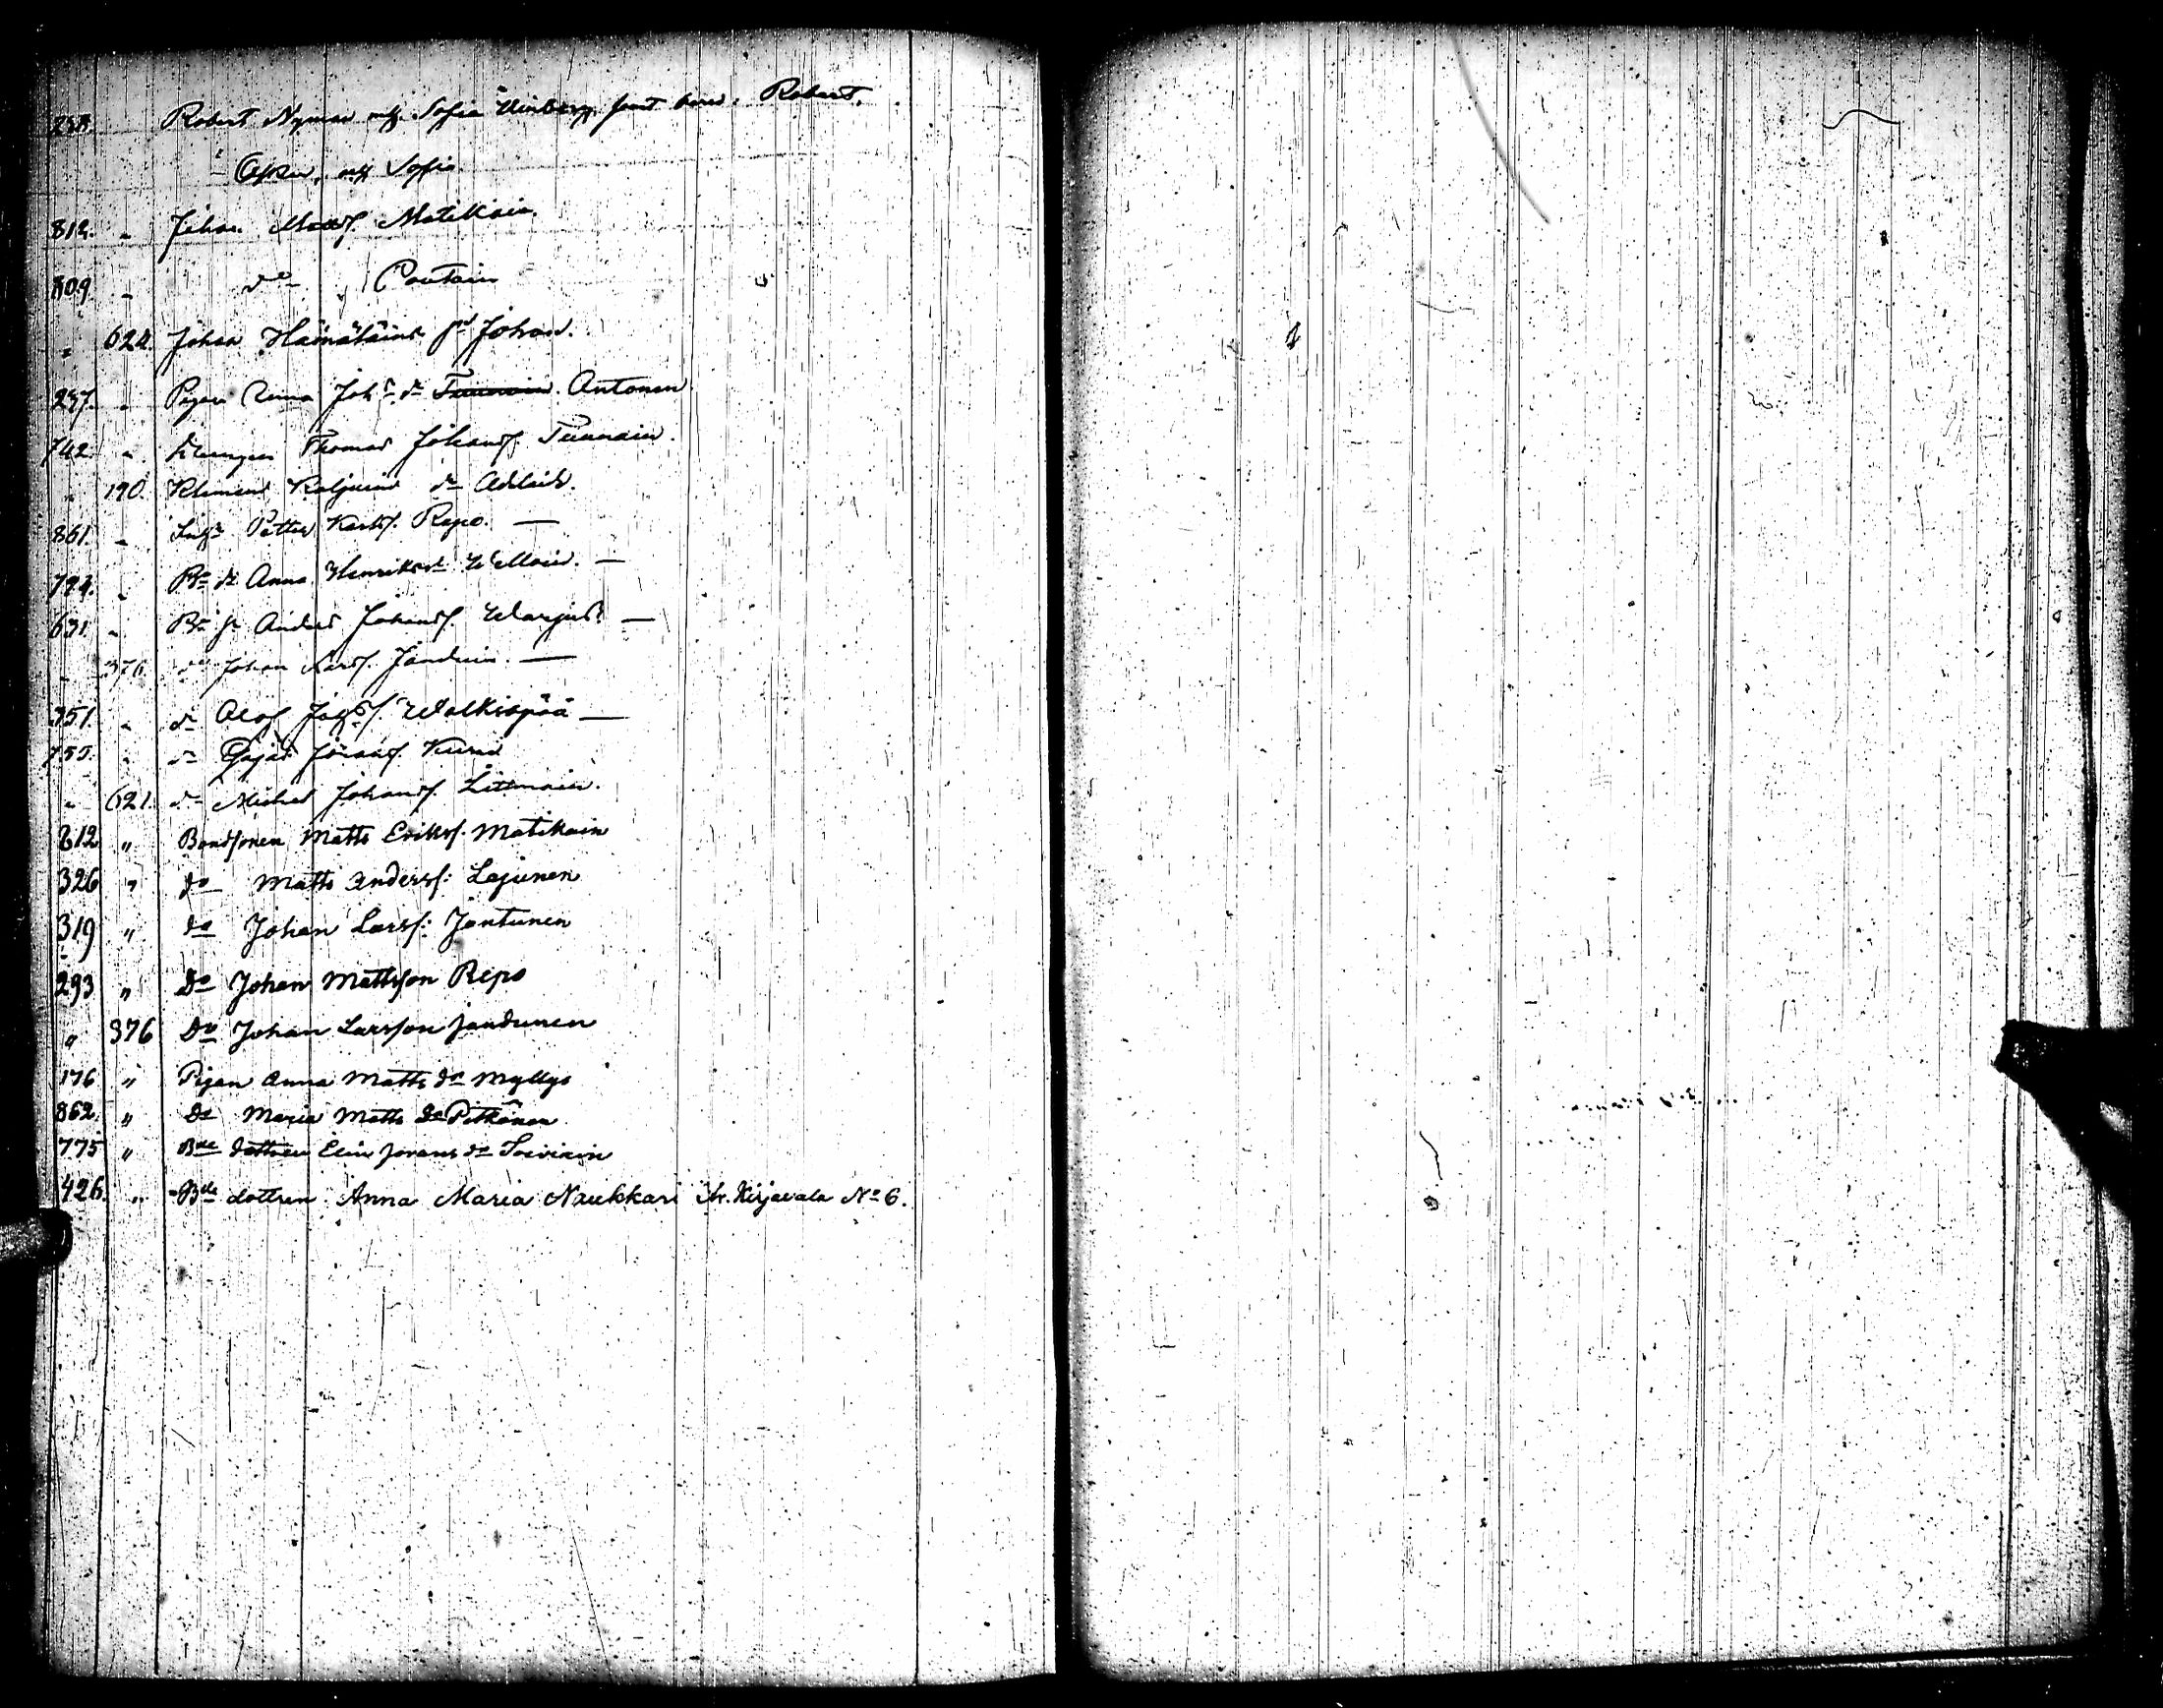 Robert Nyman och Sofia Winberg, samt barn. Robert,
och Sofia.
812. " Johan Matts. Matikain.
809 " do Poutain
" 624. Johan Hämäläinens sn Johan.
237. " Pigan Johs dr Tiainain. Antonen
742. " Drengen Thomas Johans. Tiainain.
" 190. Klemens dr Adelaid.
861. " Petter Karls. Repo. —
" Bde dr Anna Henriksdr —
631. " Bde sn Anders Johans. Warpus —
" 376 do Johan Larss. Janduin. —
351. " do Olof Walkiapää —
755. " do Johans. Kurva
" 621. do Michel Johans. Littmain.
812 " Bondsonen Matts Eriks. Matikain
326 " do Matts Anderss: Lajunen
319 " do Johan Larss: Jantunen
293 " Do Johan Mattsson Repo
" 376 Do Johan Larsson Jandunen
176 " Pigan Anna Matts dr Myllys
862. " Do Maria Matts dr Pitkänen
775 " Bde dottren Elin Johans dr Toiviain
426. " Bde dottren Anna Maria Naukkari fr. Kirjavala No 6.